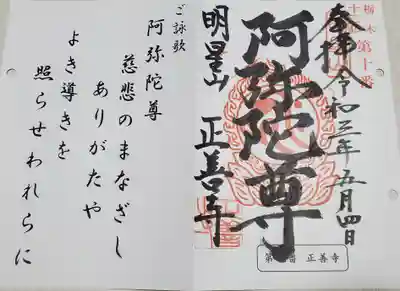 栃木第十番
奉拝 令和三年五月四日
阿弥陀尊
明星山 正善寺
正善寺
ご詠歌
阿弥陀尊
慈悲のまなざし
ありがたや
よき導きを
照らせわれらに